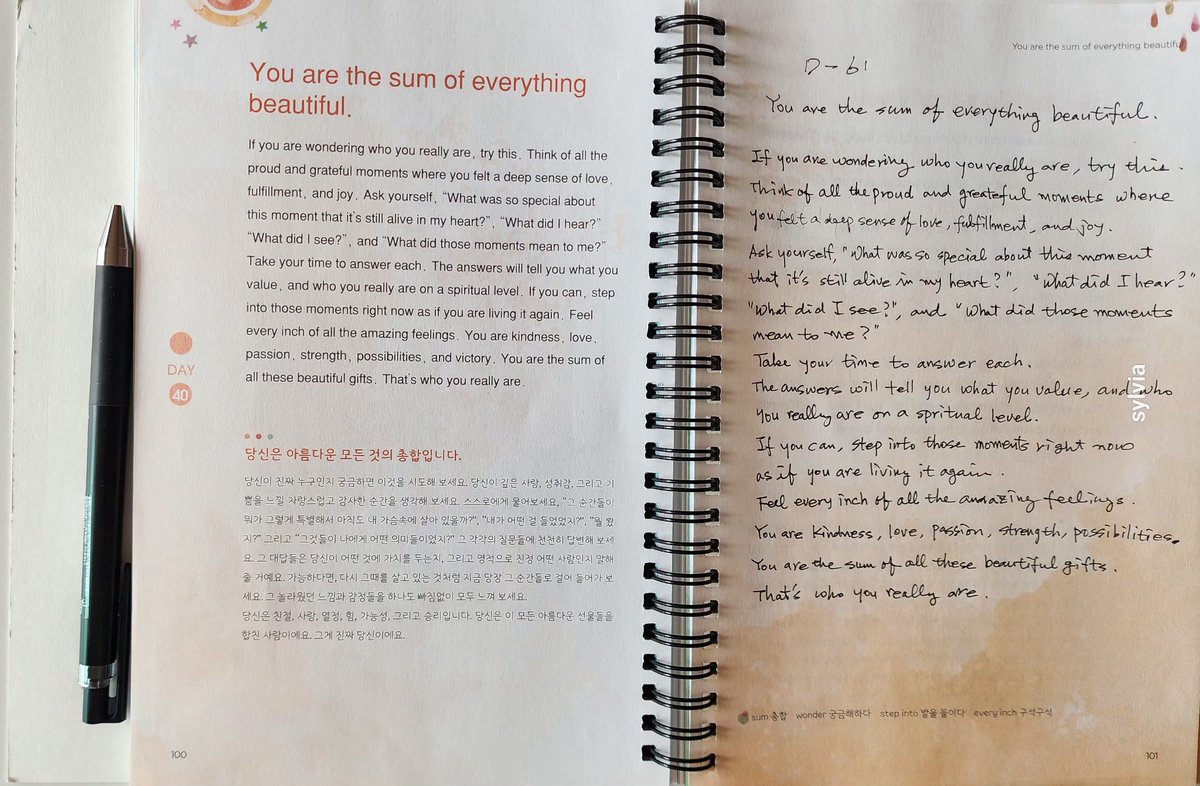 You are the sum of everything
beautiful.
If you are wondering who you really are, try this. Think of all the
proud and grateful moments where you felt a deep sense of love,
fulfillment, and joy. Ask yourself, “What was so special about
this moment that it's still alive in my heart?”, “What did I hear?”
“What did I see?”, and “What did those moments mean to me?”
Take your time to answer each. The answers will tell you what you
value, and who you really are on a spiritual level. If you can, step
into those moments right now as if you are living it again. Feel
every inch of all the amazing feelings. You are kindness, love,
passion, strength, possibilities, and victory. You are the sum of
all these beautiful gifts. That's who you really are.
DAY
40
당신은 아름다운 모든 것의 총합입니다.
당신이 진짜 누구인지 궁금하면 이것을 시도해 보세요. 당신이 깊은 사랑, 성취감, 그리고 기
쁨을 느낀 자랑스럽고 감사한 순간을 생각해 보세요. 스스로에게 물어보세요, “그 순간들이
뭐가 그렇게 특별해서 아직도 내 가슴속에 살아 있을까?”, “내가 어떤 걸 들었었지?”, “뭘 봤
지?” 그리고 “그것들이 나에게 어떤 의미들이었지?” 그 각각의 질문들에 천천히 답변해 보세
요. 그 대답들은 당신이 어떤 것에 가치를 두는지, 그리고 영적으로 진정 어떤 사람인지 말해
줄 거예요. 가능하다면, 다시 그때를 살고 있는 것처럼 지금 당장 그 순간들로 걸어 들어가 보
세요. 그 놀라웠던 느낌과 감정들을 하나도 빠짐없이 모두 느껴 보세요.
당신은 친절, 사랑, 열정, 힘, 가능성, 그리고 승리입니다. 당신은 이 모든 아름다운 선물들을
합친 사람이에요. 그게 진짜 당신이에요.
100
You are the sum of everything beautiful.
D-61
You are the sum of everything beautiful.
If you are wondering who you really are, try this.
Think of all the proud and greateful moments where
you felt a deep sense of love, fulfillment, and joy.
Ask yourself, "What was so special about this moment
that it's still alive in my heart?", "What did I hear?"
"What did I see?", and "What did those moments
mean to me?"
Take your time to answer each.
The answers will tell you what you value, and who
you really are on a spritual level.
If you can, step into those moments right now
as if you are living it again.
Feel every inch of all the amazing feelings.
You are kindness, love, passion, strength, possibilities.
You are the sum of all these beautiful gifts.
That's who you really are.
sylvia
sum 총합 wonder 궁금해하다 step into 발을 들이다 every inch 구석구석
101